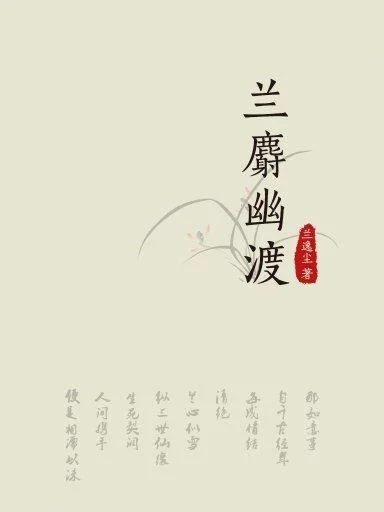 兰麝幽渡
兰逸尘 著
那如意事
自千古经年
成情结
清绝
兰心似雪
纵三世仙缘
生死契阔
人间携手
便是相濡以沫